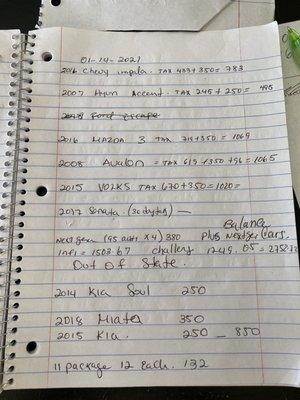 01-14-2021
2016 Chevy impala. TAX 433+350= 783
2007 Hyun Accent. TAX 245+250= 495
Ford Escape
2016 MAZDA 3 TAX 719+350= 1069
2008 Avalon = TAX 619+350+96= 1065
2015 VOLKS TAX 670+350=1020=
2017 Sonata. (30 dytag) —
Balance
Next gear (95 auti X 4) 380 Plus Nextger Cars.
infi = 1503.67 challeng 1249.05 = 2752.72
Out of State.
2014 Kia Soul 250
2018 Miata 350
2015 Kia. 250 — 850
11 package 12 Each. 132